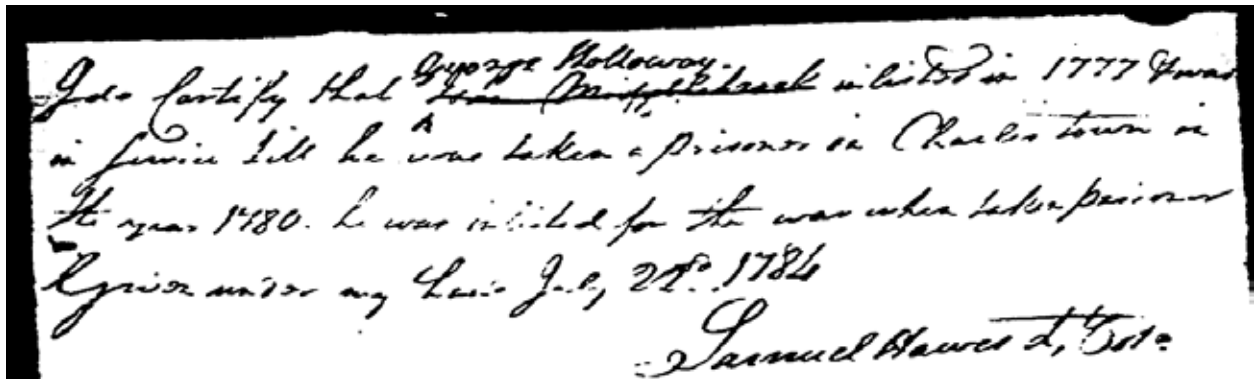 George Holloway.
I do Certify that inlisted in 1777 & was
in Service till he was taken a prisoner in Charles town in
the year 1780. he was inlisted for the war when taken prisoner
given under my hand July 22d. 1784
Samuel Hawes Lt, Colo